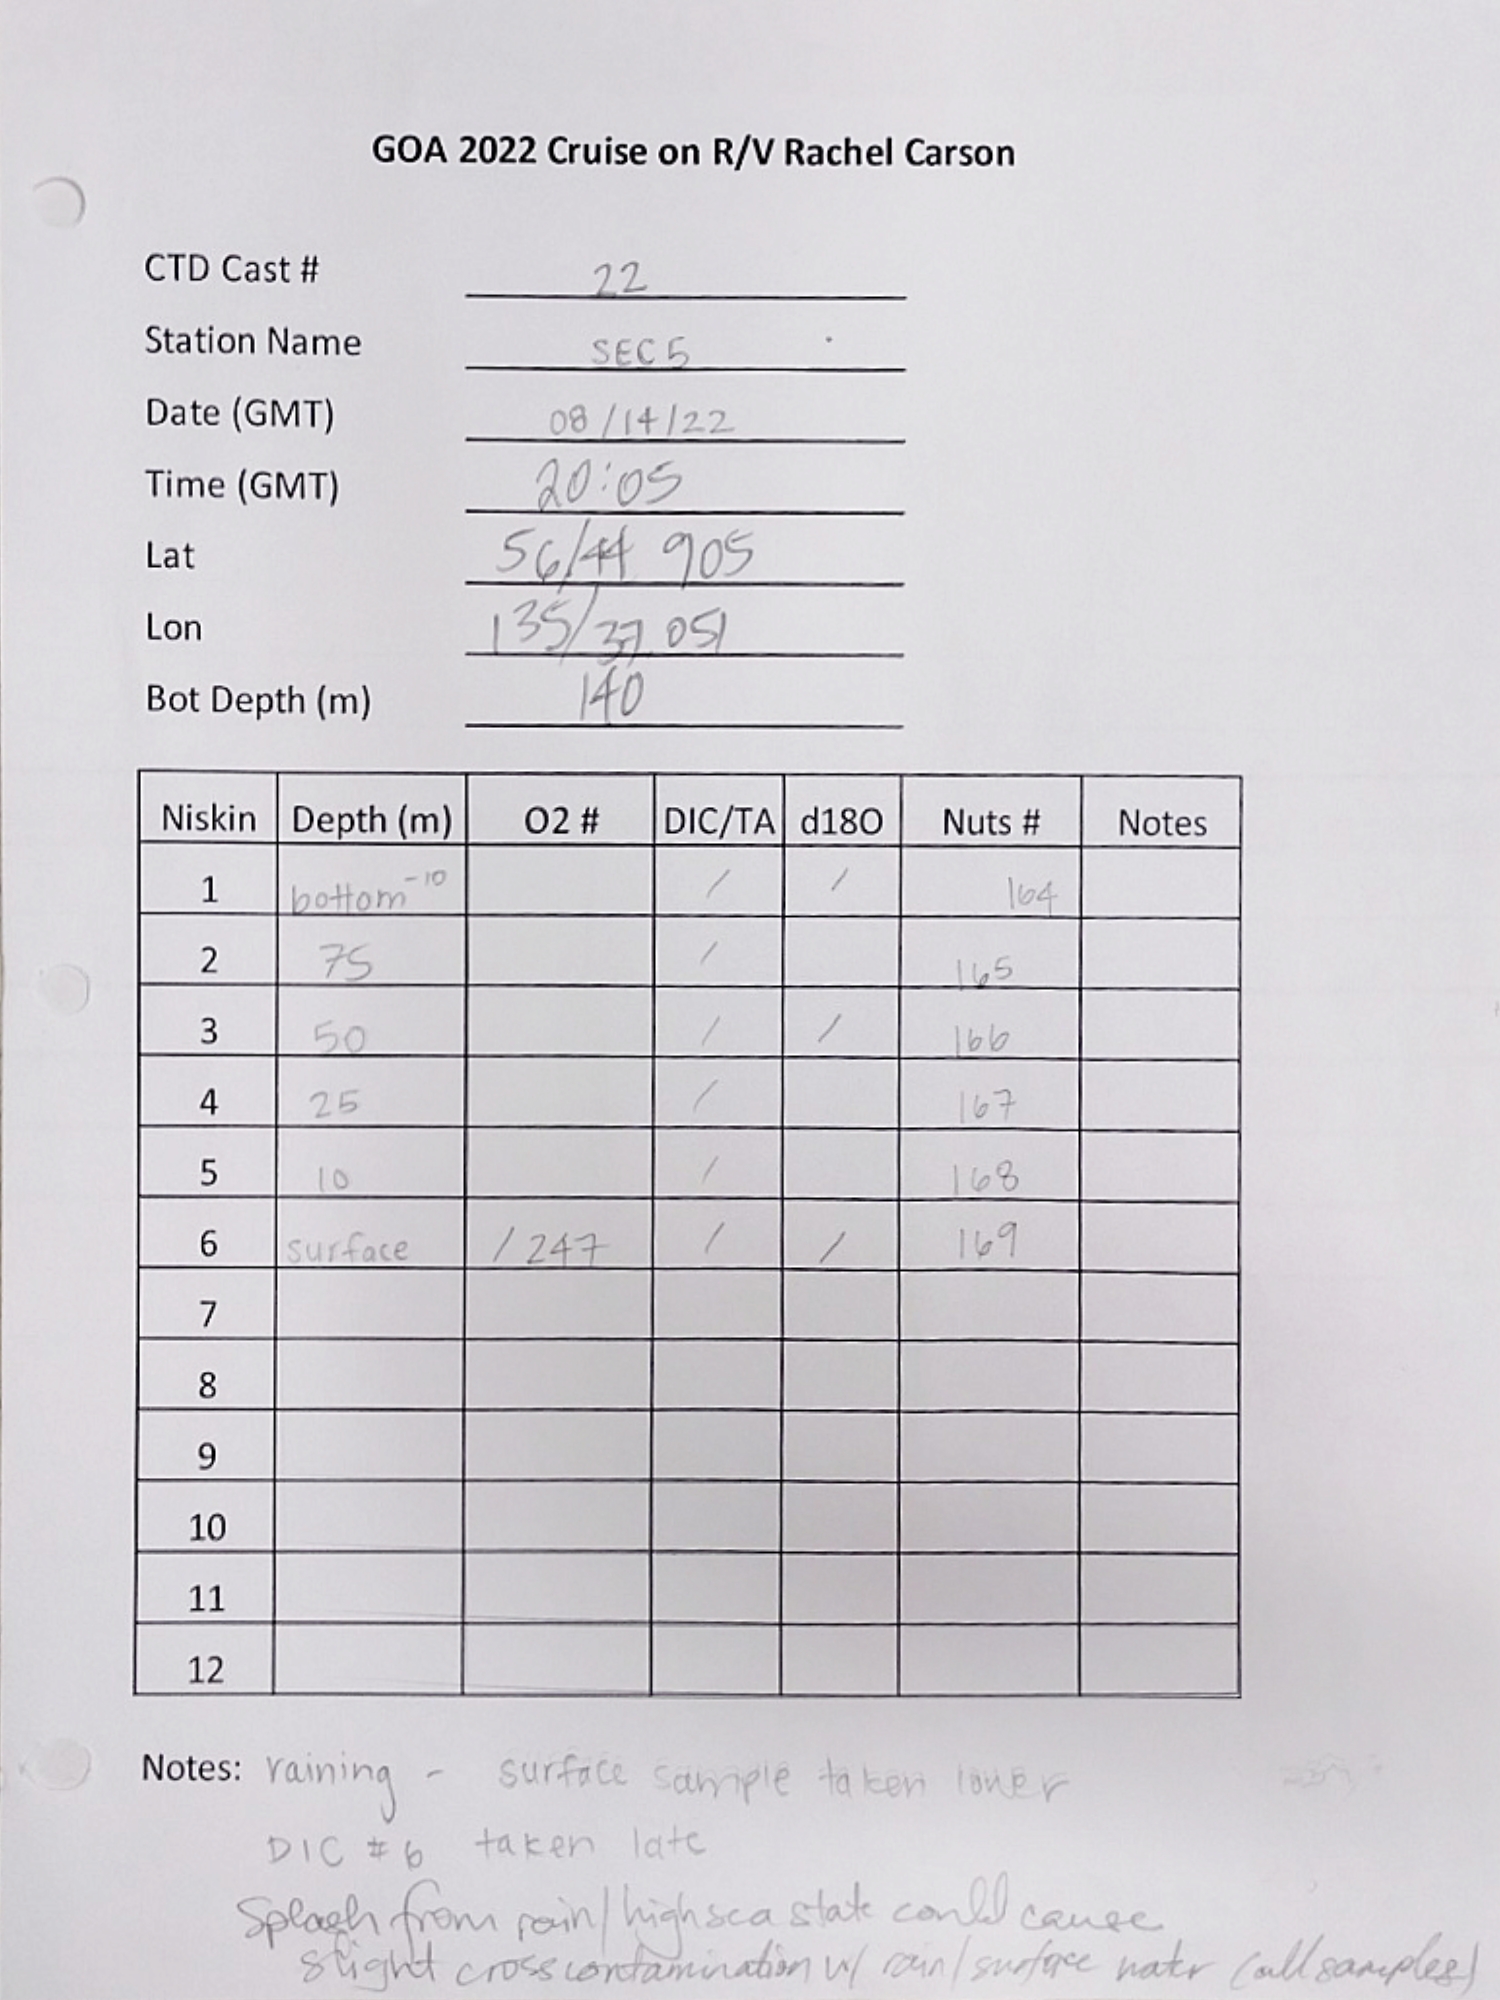 GOA 2022 Cruise on R/V Rachel Carson
CTD Cast # 22
Station Name SEC5
Date (GMT) 08/14/22
Time (GMT) 20:05
Lat 56/44 905
Lon 135/37.051
Bot Depth (m) 140
Niskin Depth (m) O2 # DIC/TA d18O Nuts # Notes
1 bottom -10 / / 164
2 75 / 165
3 50 / / 166
4 25 / 167
5 10 / 168
6 surface / 247 / / 169
7
8
9
10
11
12
Notes: raining - surface sample taken lower
DIC #6 taken late
Splash from rain/high sea state could cause
slight cross contamination w/ rain/surface water (all samples)